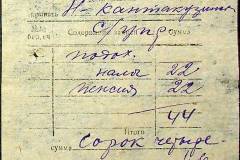 Н- Кантакузин
С/упр
Содержание сумма
подох.
налог 22
пенсия 22
44
Итого
сумма Сорок четыре